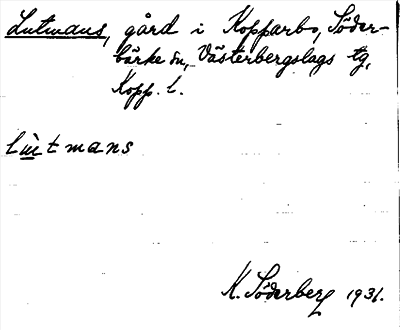 Lutmans, gård i Kopparbo, Söder-
bärke sn, Västerbergslags tg,
Kopp. l.
lùtmans
K. Söderberg 1931.